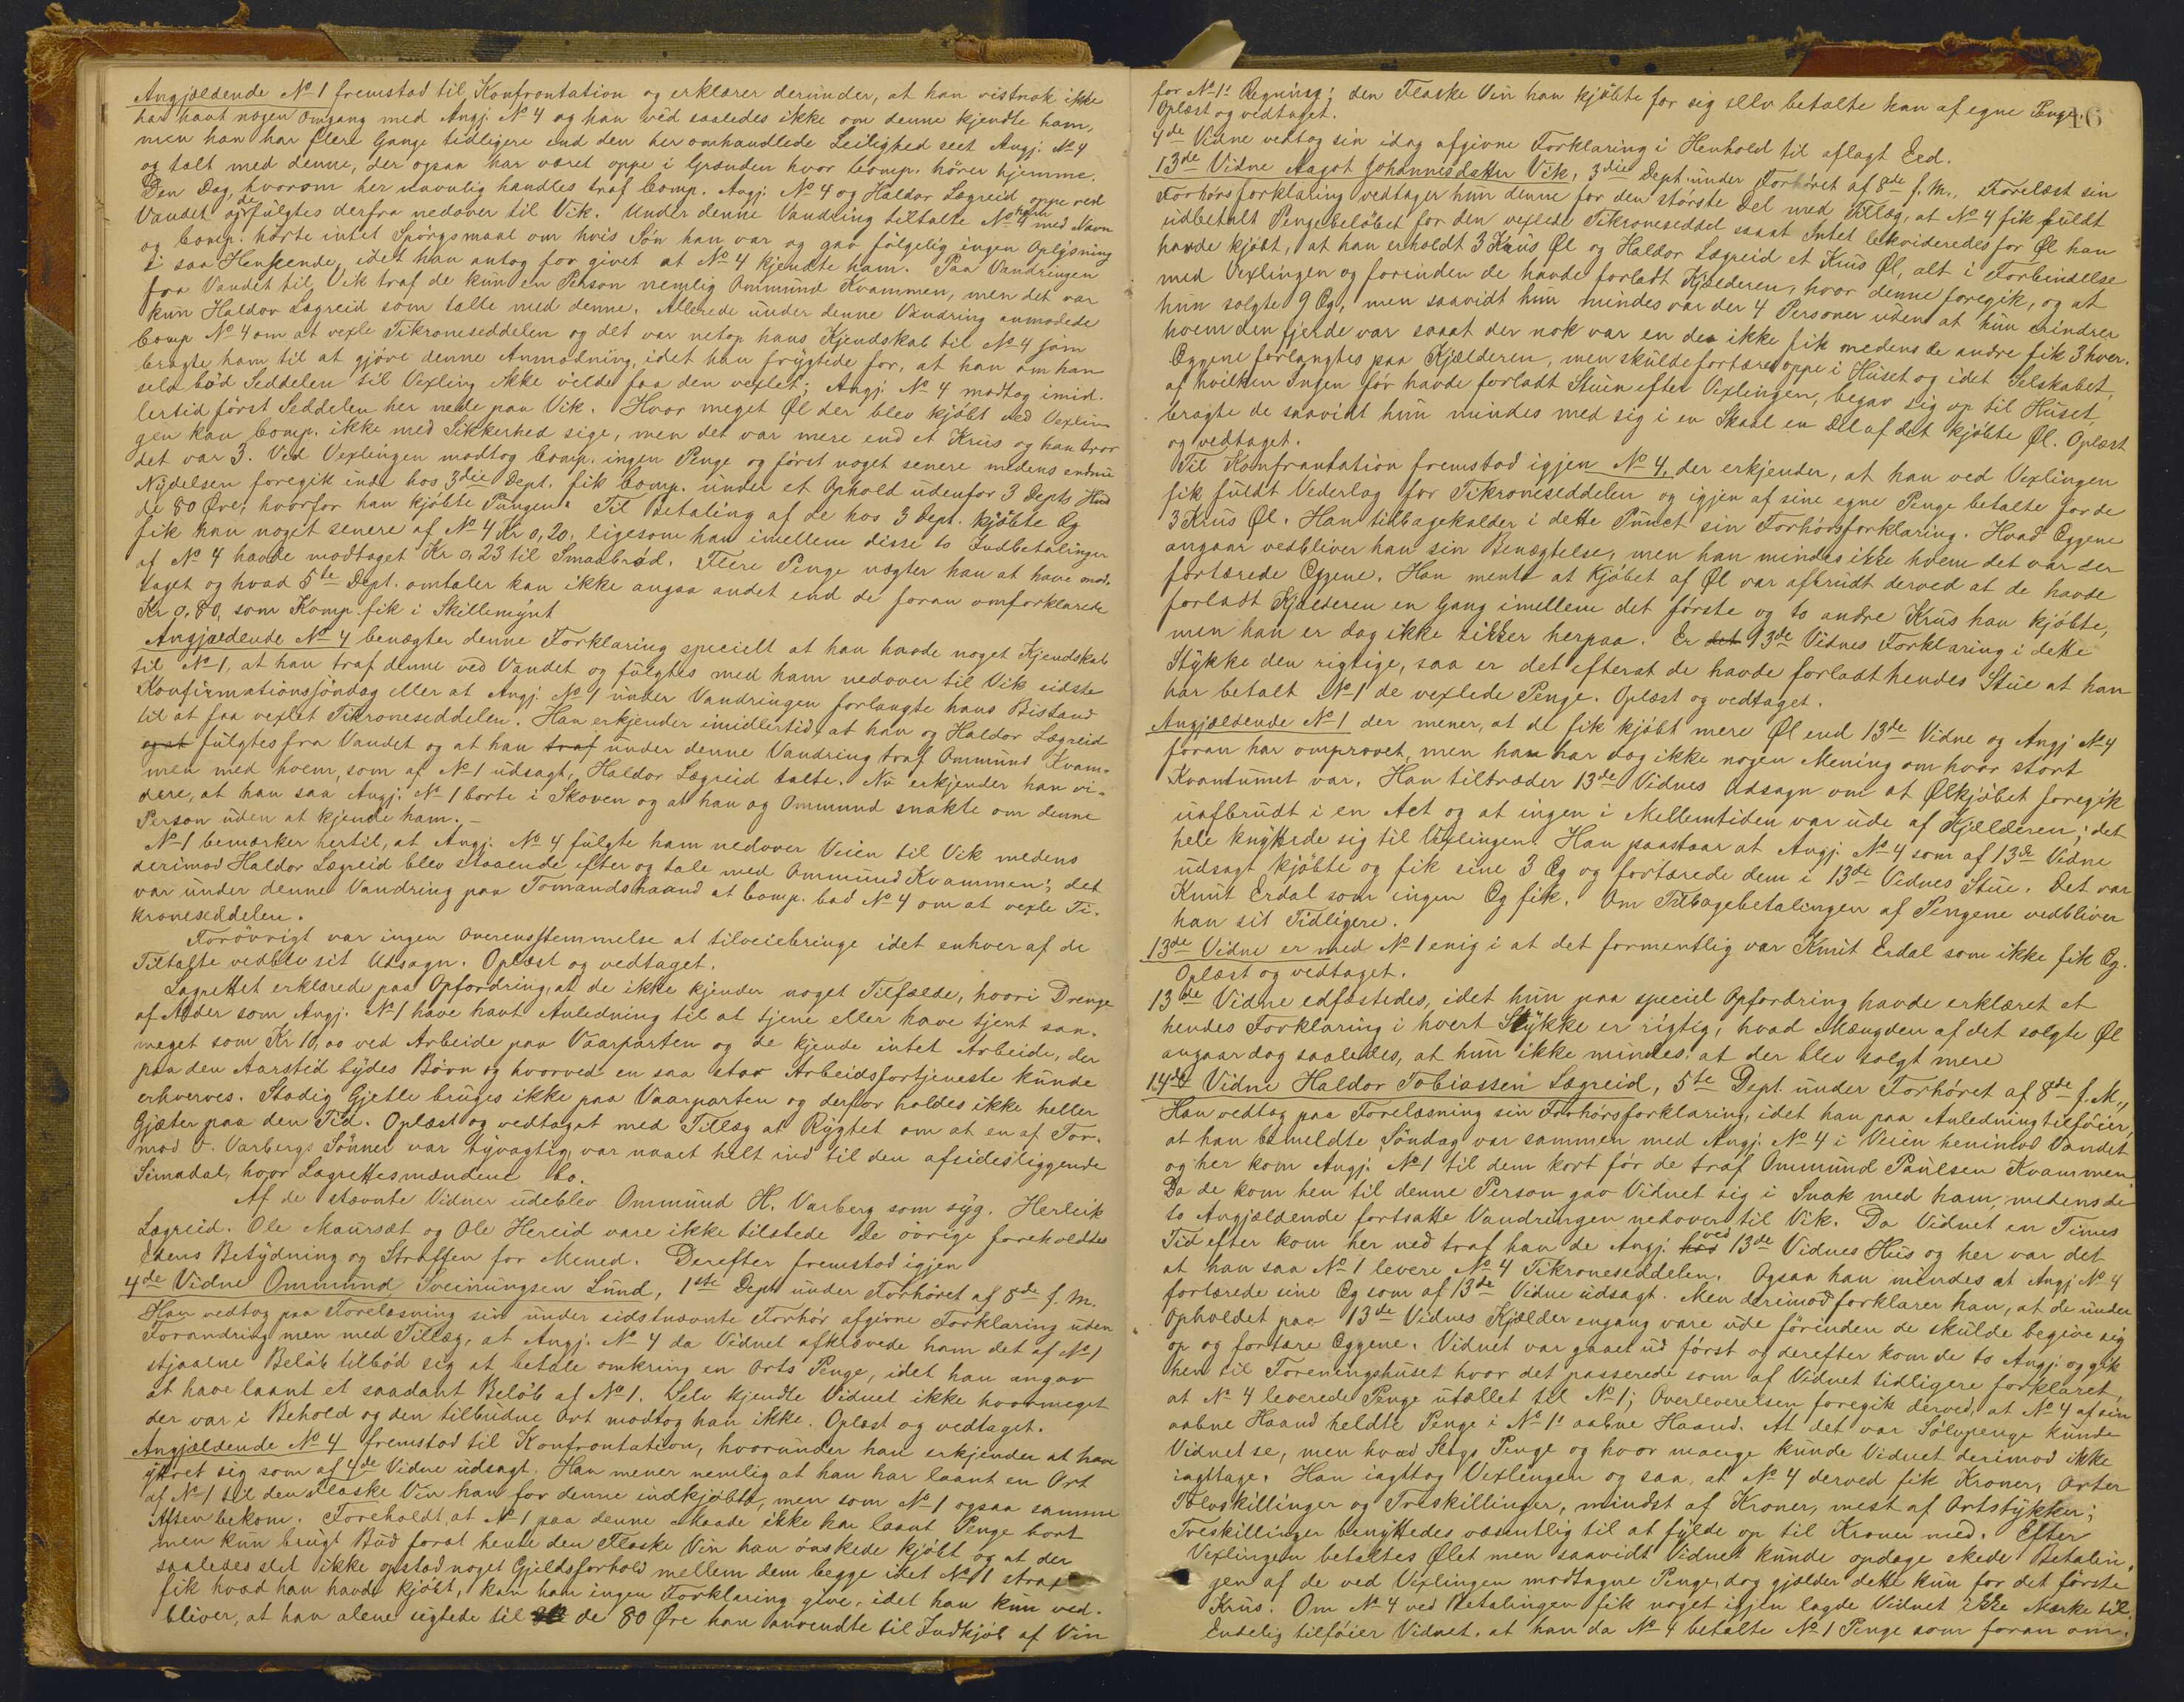 Angjældende No 1 fremstod til Konfrontation og erklærer derunder, at han vistnok ikke
har havt nogen Omgang med Angj. No 4 og han véd saaledes ikke om denne kjendte ham,
men han har flere Gange tidligere end den her omhandlede Leilighed seet Angj. No 4
og talt med denne, der ogsaa har været oppe i Grænden hvor Comp. hörer hjemme.
Den Dag, hvorom her navnlig handles traf Comp. Angj. No 4 og Haldor Lægreid oppe ved
Vandet og de fulgtes derfra nedover til Vik. Under denne Vandring tiltalte No 4 ham med Navn
og Comp. hörte intet Spörgsmaal om hvis Sön han var og gav fölgelig ingen Oplysning
i saa Henseende, idet han antog for givet at No 4 kjendte ham. Paa Vandringen
fra Vandet til Vik traf de kun en Person nemlig Ommund Kvammen, men det var
kun Haldor Lægreid som talte med denne. Allerede under denne Vandring anmodede
Comp No 4 om at vexle Tikroneseddelen og det var netop hans Kjendskab til No 4 som
bragte ham til at gjöre denne Anmodning, idet han frygtede for, at han om han
selv böd Seddelen til Vexling ikke vilde faa den vexlet; Angj. No 4 modtog imid.
lertid först Seddelen her nede paa Vik. Hvor meget Øl der blev kjöbt ved Vexlin-
gen kan Comp. ikke med Sikkerhed sige, men det var mere end et Krus og han tror
det var 3. Ved Vexlingen modtog Comp. ingen Penge og först noget senere medens endnu
Nydelsen foregik inde hos 3die Dept. fik Comp. under et Ophold udenfor 3 Depts Hus
de 80 Øre, hvorfor han kjöbte Pungen. Til Betaling af de hos 3 Dept. kjöbte Æg
fik han noget senere af No 4 Kr 0,20, ligesom han imellem disse to Indbetalinger
af No 4 havde modtaget Kr 0,23 til Smaabröd. Flere Penge nægter han at have mod.
taget og hvad 5te Dept. omtaler kan ikke angaa andet end de foran omforklarede
Kr 0,80, som Komp. fik i Skillemynt
Angjældende No 4 benægter denne Forklaring specielt at han havde noget Kjendskab
til No 1, at han traf denne ved Vandet og fulgtes med ham nedover til Vik sidste
Konfirmationssöndag eller at Angj. No 1 under Vandringen forlangte hans Bistand
til at faa vexlet Tikroneseddelen. Han erkjender imidlertid, at han og Haldor Lægreid
og at fulgtes fra Vandet og at han traf under denne Vandring traf Ommund Kvam-
men med hvem, som af No 1 udsagt, Haldor Lægreid talte. Nu erkjender han vi-
dere, at han saa Angj. No 1 borte i Skoven og at han og Ommund snakte om denne
Person uden at kjende ham. –
No 1 bemærker hertil, at Angj. No 4 fulgte ham nedover Veien til Vik medens
derimod Haldor Lægreid blev staaende efter og tale med Ommund Kvammen; det
var under denne Vandring paa Tomandshaand at Comp. bad No 4 om at vexle Ti-
kroneseddelen.
Forövrigt var ingen Overensstemmelse at tilveiebringe idet enhver af de
Tiltalte vedblev sit Udsagn. Oplæst og vedtaget.
Lagrettet erklærede paa Opfordring, at de ikke kjender noget Tilfælde, hvori Drenge
af Alder som Angj. No 1 have havt Anledning til at tjene eller have tjent saa-
meget som Kr 10,00 ved Arbeide paa Vaarparten og de kjende intet Arbeide, der
paa den Aarstid bydes Börn og hvorved en saa stor Arbeidsfortjeneste kunde
erhverves. Stadig Gjetle bruges ikke paa Vaarparten og derfor holdes ikke heller
Gjæter paa den Tid. Oplæst og vedtaget med Tillæg at Rygtet om at en af Tor-
mod O. Varbergs Sönner var tyvagtig, var naaet helt ind til den afsidesliggende
Simadal, hvor Lagrettesmændene bo.
Af de stævnte Vidner udeblev Ommund H. Varberg som syg. Herleik
Lægreid. Ole Maursæt og Ole Hereid vare ikke tilstede De övrige foreholdtes
Edens Betydning og Straffen for Mened. Derefter fremstod igjen
4de Vidne Ommund Sveinungsen Lund, 1ste Dept under Forhöret af 8de f. M.
Han vedtog paa Forelæsning sin under sidstnævnte Forhör afgivne Forklaring uden
Forandring men med Tillæg, at Angj. No 4 da Vidnet afkrævede ham det af No 1
stjaalne Belöb tilböd sig at betale omkring en Orts Penge, idet han angav
at have laant et saadant Belöb af No 1. Selv kjendte Vidnet ikke hvormeget
der var i Behold og den tilbudne Ort modtog han ikke. Oplæst og vedtaget.
Angjældende No 4 fremstod til Konfrontation, hvorunder han erkjender at have
ytret sig som af 4de Vidne udsagt. Han mener nemlig at han har laant en Ort
af No 1 til den Flaske Vin han for denne indkjöbte, men som No 1 ogsaa samme
Aften bekom. Foreholdt, at No 1 paa denne Maade ikke har laant Penge bort
men kun brugt Bud forat hente den Flaske Vin han önskede kjöbt og at der
saaledes slet ikke opstod noget Gjeldsforhold mellem dem begge idet No 1 strax
fik hvad han havde kjöbt, kan han ingen Forklaring give, idet han kun ved-
bliver, at han alene sigtede til de 80 Øre han anvendte til Indkjöb af Vin
16
for No 1s Regning; den Flaske Vin han kjöbte for sig selv betalte han af egne Penge.
Oplæst og vedtaget.
4de Vidne vedtog sin idag afgivne Forklaring i Henhold til aflagt Eed.
13de Vidne Aagot Johannisdatter Vik, 3die Dept. under Forhöret af 8de f. M., Forelæst sin
Forhörsforklaring vedtager hun denne for den störste Del med Tillæg, at No 4 fik fuldt
udbetalt Pengebelöbet for den vexlede Tikroneseddel saaat Intet likvideredes for Øl han
havde kjöbt, at han erholdt 3 Krus Øl og Haldor Lægreid et Krus Øl, alt i Forbindelse
med Vexlingen og forinden de havde forladt Kjælderen, hvor denne foregik, og at
hun solgte 9 Æg, men saavidt hun mindes var der 4 Personer uden at hun erindrer
hvem den fjerde var saaat der nok var en der ikke fik medens de andre fik 3 hver.
Æggene forlangtes paa Kjælderen, men skulde fortæres oppe i Huset og idet Selskabet,
af hvilken Ingen för havde forladt Stuen efter Vexlingen, begav sig op til Huset,
bragte de saavidt hun mindes med sig i en Skaal en Del af det kjöbte Øl. Oplæst
og vedtaget.
Til Konfrontation fremstod igjen No 4, der erkjender, at han ved Vexlingen
fik fuldt Vederlag for Tikroneseddelen og igjen af sine egne Penge betalte for de
3 Krus Øl. Han tilbagekalder i dette Punct sin Forhörsforklaring. Hvad Æggene
angaar vedbliver han sin Benægtelse, men han mindes ikke hvem det var der
fortærede Æggene. Han mente at Kjöbet af Øl var afbrudt derved at de havde
forladt Kjælderen en Gang imellem det förste og to andre Krus han kjöbte,
men han er dog ikke sikker herpaa. Er det 13de Vidnes Forklaring i dette
Stykke den rigtige, saa er det efterat de havde forladt hendes Stue at han
har betalt No 1 de vexlede Penge. Oplæst og vedtaget.
Angjældende No 1 der mener, at de fik kjöbt mere Øl end 13de Vidne og Angj No 4
foran har omprovet, men han har dog ikke nogen Mening om hvor stort
Kvantumet var. Han tiltræder 13de Vidnes Udsagn om at Ølkjöbet foregik
uafbrudt i en Act og at ingen i Mellemtiden var ude af Kjælderen; det
hele knyttede sig til Vexlingen. Han paastaar at Angj. No 4 som af 13de Vidne
udsagt kjöbte og fik sine 3 Æg og fortærede dem i 13de Vidnes Stue. Det var
Knut Erdal som ingen Æg fik. Om Tilbagebetalingen af Pengene vedbliver
han sit Tidligere.
13de Vidne er med No 1 enig i at det formentlig var Knut Erdal som ikke fik Æg.
Oplæst og vedtaget.
13de Vidne edfæstedes, idet hun paa speciel Opfordring havde erklæret at
hendes Forklaring i hvert Stykke er rigtig, hvad Mængden af det solgte Øl
angaar dog saaledes, at hun ikke mindes at der blev solgt mere
14de Vidne Haldor Tobiassen Lægreid, 5te Dept. under Forhöret af 8de f. M.,
Han vedtog paa Forelæsning sin Forhörsforklaring, idet han paa Anledning tilföier,
at han bemeldte Söndag var sammen med Angj. No 4 i Veien henimod Vandet
og her kom Angj. No 1 til dem kort för de traf Ommund Paulsen Kvammen.
Da de kom hen til denne Person gav Vidnet sig i Snak med ham, medens de
to Angjældende fortsatte Vandringen nedover til Vik. Da Vidnet en Times
Tid efter kom her ned traf han de Angj. hos ved 13de Vidnes Hus og her var det
at han saa No 1 levere No 4 Tikroneseddelen. Ogsaa han mindes at Angj No 4
fortærede sine Æg som af 13de Vidne udsagt. Men derimod forklarer han, at de under
Opholdet paa 13de Vidnes Kjælder engang vare ude förinden de skulde begive sig
op og fortære Æggene. Vidnet var gaaet ud först og derefter kom de to Angj. og gik
hen til Foreningshuset hvor det passerede som af Vidnet tidligere forklaret,
at No 4 leverede Penge utællet til No 1; Overleverelsen foregik derved, at No 4 af sin
aabne Haand heldte Penge i No 1s aabne Haand. At det var Sölvpenge kunde
Vidnet se, men hvad Slags Penge og hvor mange kunde Vidnet derimod ikke
iagttage. Han iagttog Vexlingen og saa, at No 4 derved fik Kroner, Orter
Tolvskillinger og Treskillinger, mindst af Kroner, mest af Ortstykker;
Treskillinger benyttedes væsentlig til at fylde op til Kroner med. Efter
Vexlingen betaltes Ølet men saavidt Vidnet kunde opdage skede Betalin-
gen af de ved Vexlingen modtagne Penge, dog gjælder dette kun for det förste
Krus. Om No 4 ved Betalingen fik noget igjen lagde Vidnet ikke Mærke til.
Endelig tilföier Vidnet, at han da No 4 betalte No 1 Penge som foran om-